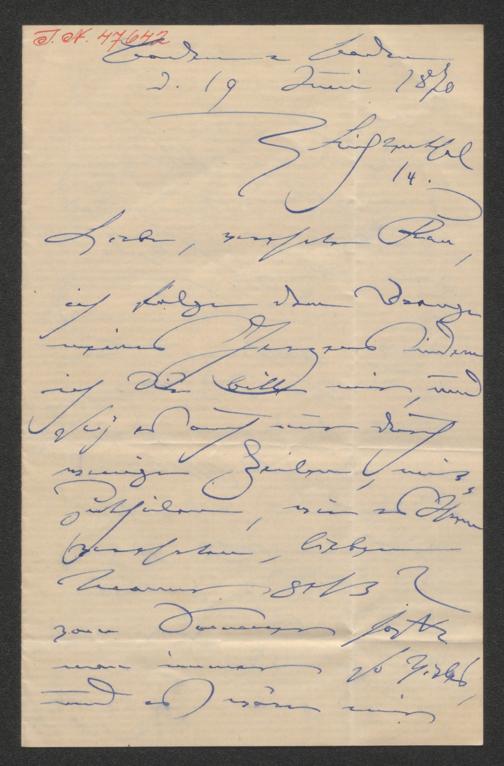 I.N. 47642
Baden-Baden
d. 19 Juni 1870
14.
Liebe, verehrte Frau,
ich folge dem Drange
meines Herzens indem
ich Sie bitte mir, und
sei es auch nur durch
wenige Zeilen, mit-
zutheilen, wie es Ihrem
verehrten, lieben
Manne geht?
zum Donaueschingen
man immer
und es wäre mir